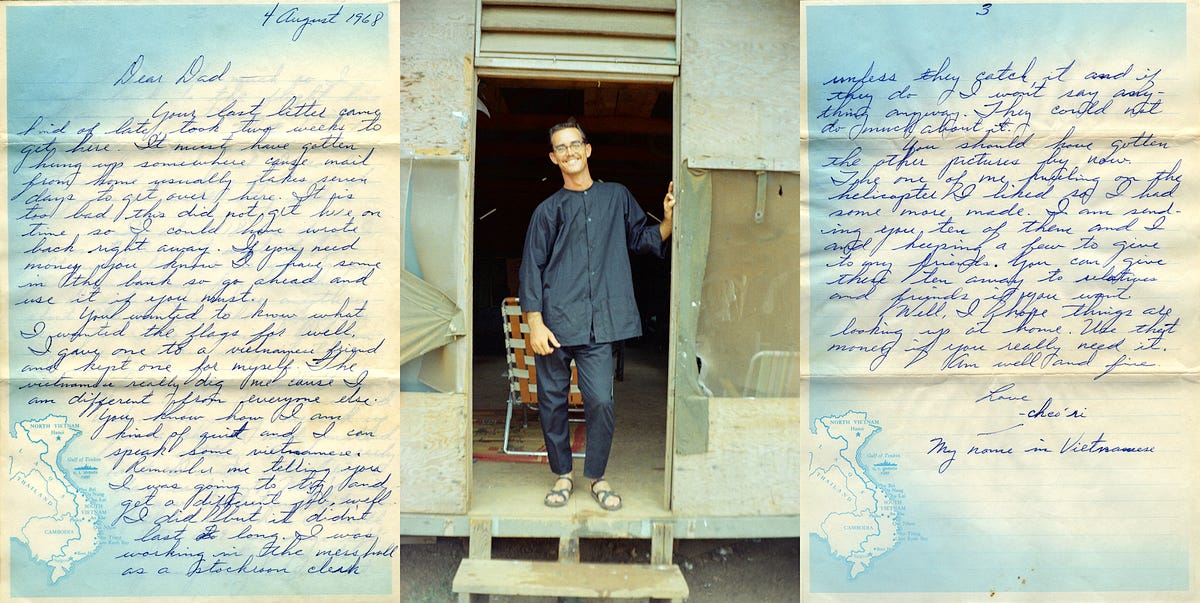 4 August 1968
Dear Dad —
Your last letter came
kind of late, took two weeks to
get here. It must have gotten
hung up somewhere cause mail
from home usually takes seven
days to get over here. It is
too bad this did not get here on
time so I could have wrote
back right away. If you need
money you know I have some
in the bank so go ahead and
use it if you must.
You wanted to know what
I wanted the flags for well.
I gave one to a vietnamese friend
and kept one for myself. The
vietnamese really dig me cause I
am different from everyone else.
You know how I am
kind of quiet and I can
speak some vietnamese.
Remember me telling you
I was going to try and
get a different job, well
I did but it didn't
last to long. I was
working in the mess hall
as a stockroom clerk
NORTH VIETNAM
Hanoi
Gulf of Tonkin
LAOS
THAILAND
CAMBODIA
SOUTH
VIETNAM
3
unless they catch it and if
they do I won't say any-
thing anyway. They could not
do much about it.
You should have gotten
the other pictures by now.
The one of me putting on the
helicopter I liked so I had
some more made. I am send-
ing you ten of them and I
am keeping a few to give
to my friends. You can give
these ten away to relatives
and friends if you want
Well, I hope things are
looking up at home. Use that
money if you really need it.
Am well and fine.
Love
-cheo ri
My name in Vietnamese
NORTH VIETNAM
Hanoi
Gulf of Tonkin
LAOS
THAILAND
CAMBODIA
SOUTH
VIETNAM